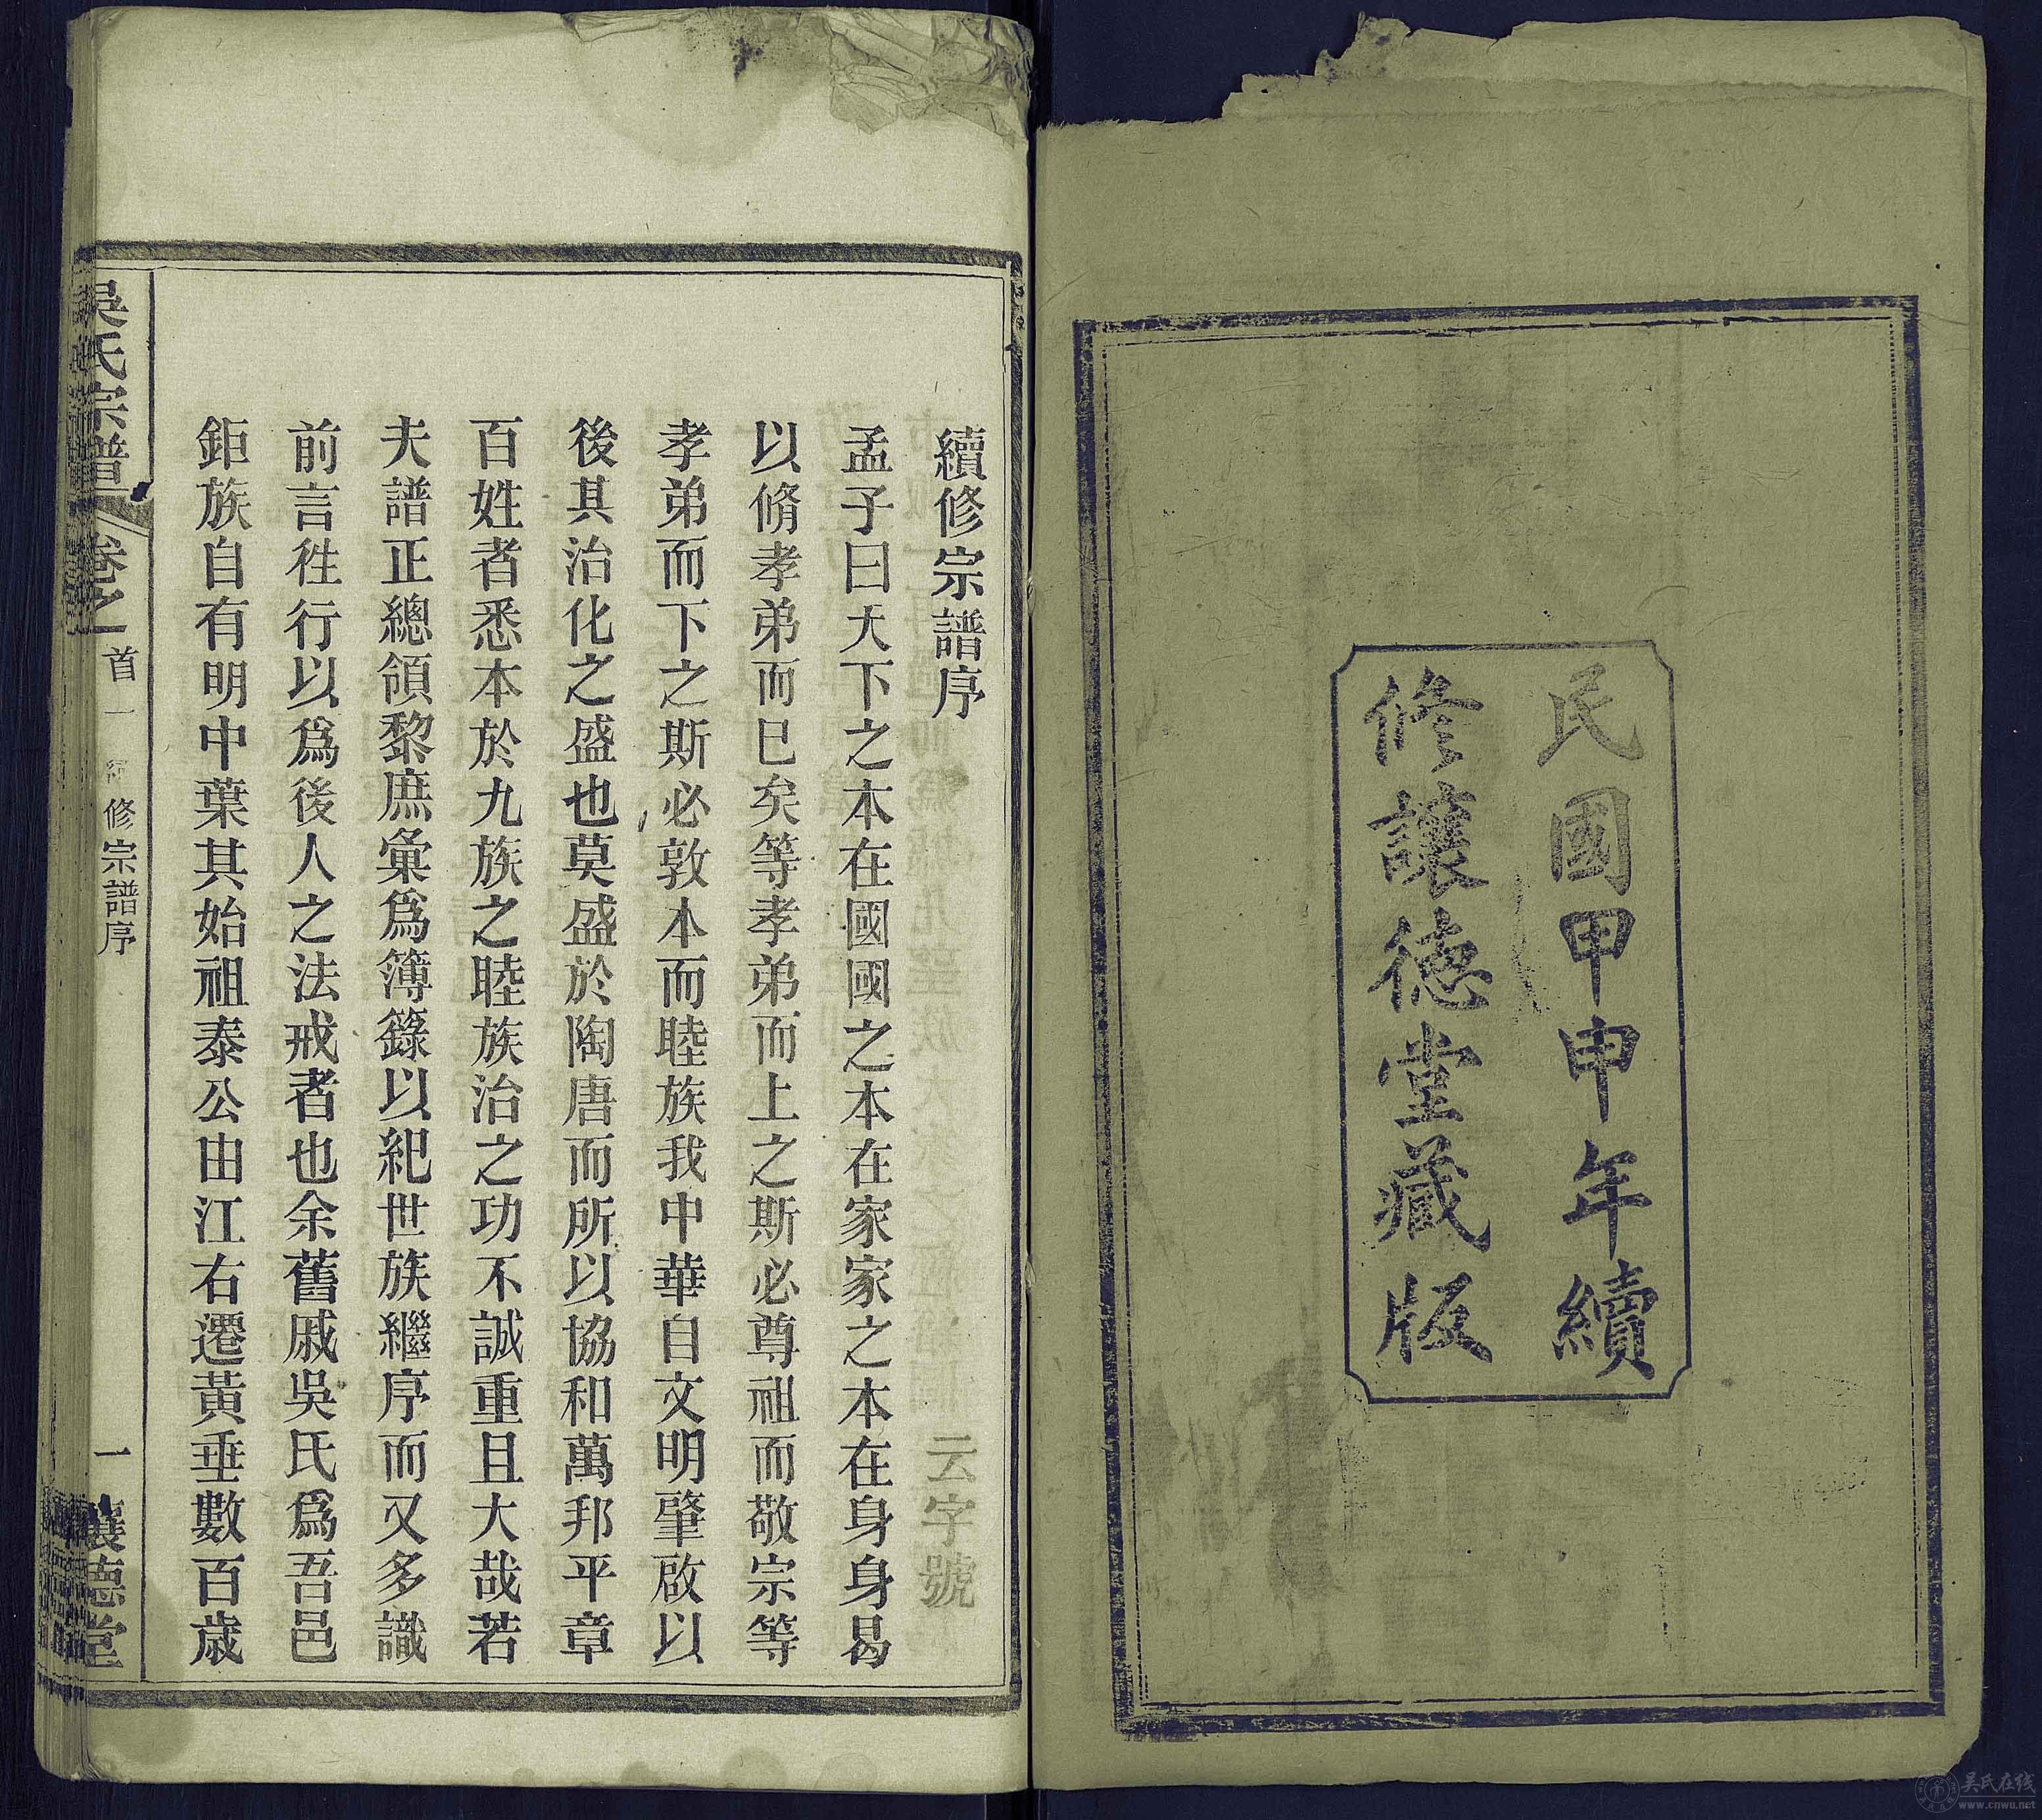 民國甲申年續
修讓德堂藏版
續修宗譜序
云字號
孟子曰天下之本在國國之本在家家之本在身身曷
以脩孝弟而巳矣等孝弟而上之斯必尊祖而敬宗等
孝弟而下之斯必敦本而睦族我中華自文明肇啟以
後其治化之盛也莫盛於陶唐而所以協和萬邦平章
百姓者悉本於九族之睦族治之功不誠重且大哉若
夫譜正總領黎庶彙爲簿籙以紀世族繼序而又多識
前言徃行以爲後人之法戒者也余舊戚吳氏爲吾邑
鉅族自有明中葉其始祖泰公由江右遷黃垂數百歲
吳氏宗譜
卷之
首一
修宗譜序
一
讓德堂
吴氏在线
www.cnwu.net